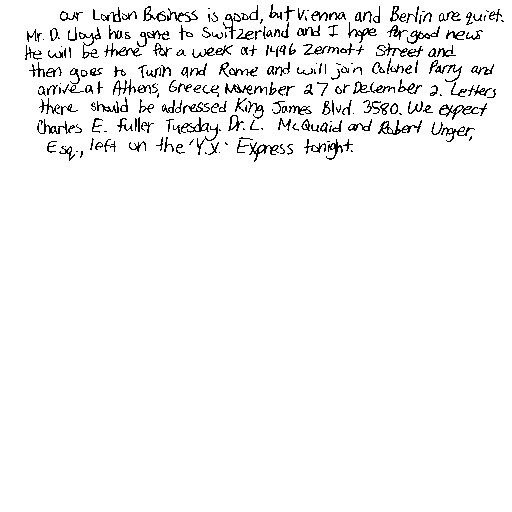 our London Business is good, but Vienna and Berlin are quiet.
Mr. D. Lloyd has gone to Switzerland and I hope for good news
He will be there for a week at 1496 Zermott Street and
then goes to Turin and Rome and will join Colonel Parry and
arrive at Athens, Greece, November 27 or December 2. Letters
there should be addressed King James Blvd. 3580. We expect
Charles E. fuller Tuesday. Dr. L. McQuaid and Robert Unger,
Esq., left on the 'Y.X.' Express tonight.